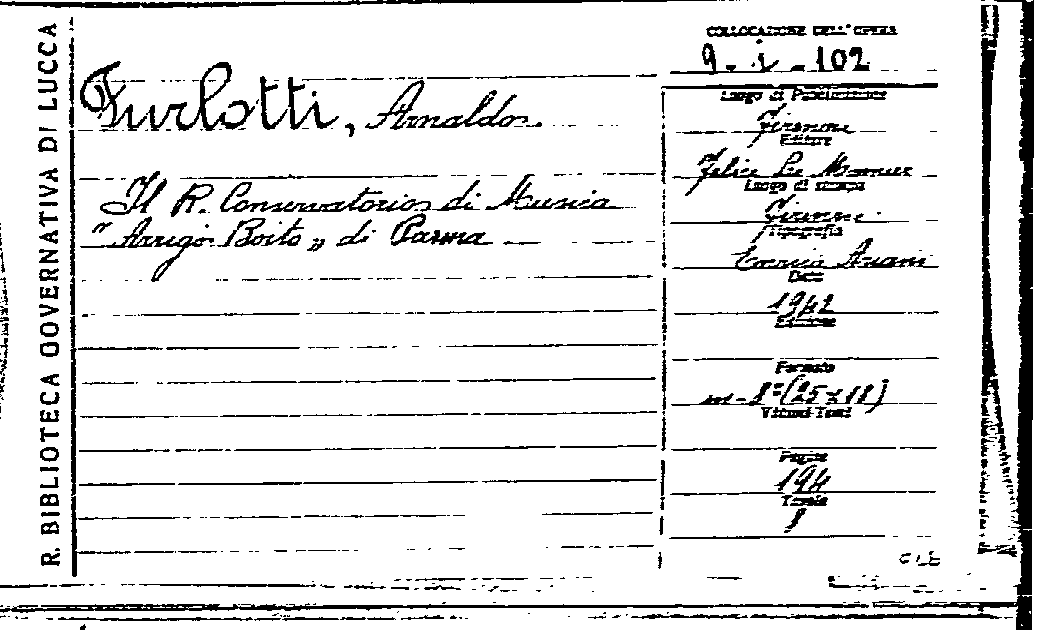 R. BIBLIOTECA GOVERNATIVA DI LUCCA
Furlotti, Arnaldo.
Il R. Conservatorio di Musica
"Arrigo Boito" di Parma
COLLOCAZIONE DELL'OPERA
9 - i - 102
Luogo di Pubblicazione
Firenze
Editore
Felice Le Monnier
Luogo di stampa
Firenze
Tipografia
Enrico Ariani
Data
1942
Edizione
Formato
in-8º (25x18)
Volumi-Tomi
Pagine
194
Tavole